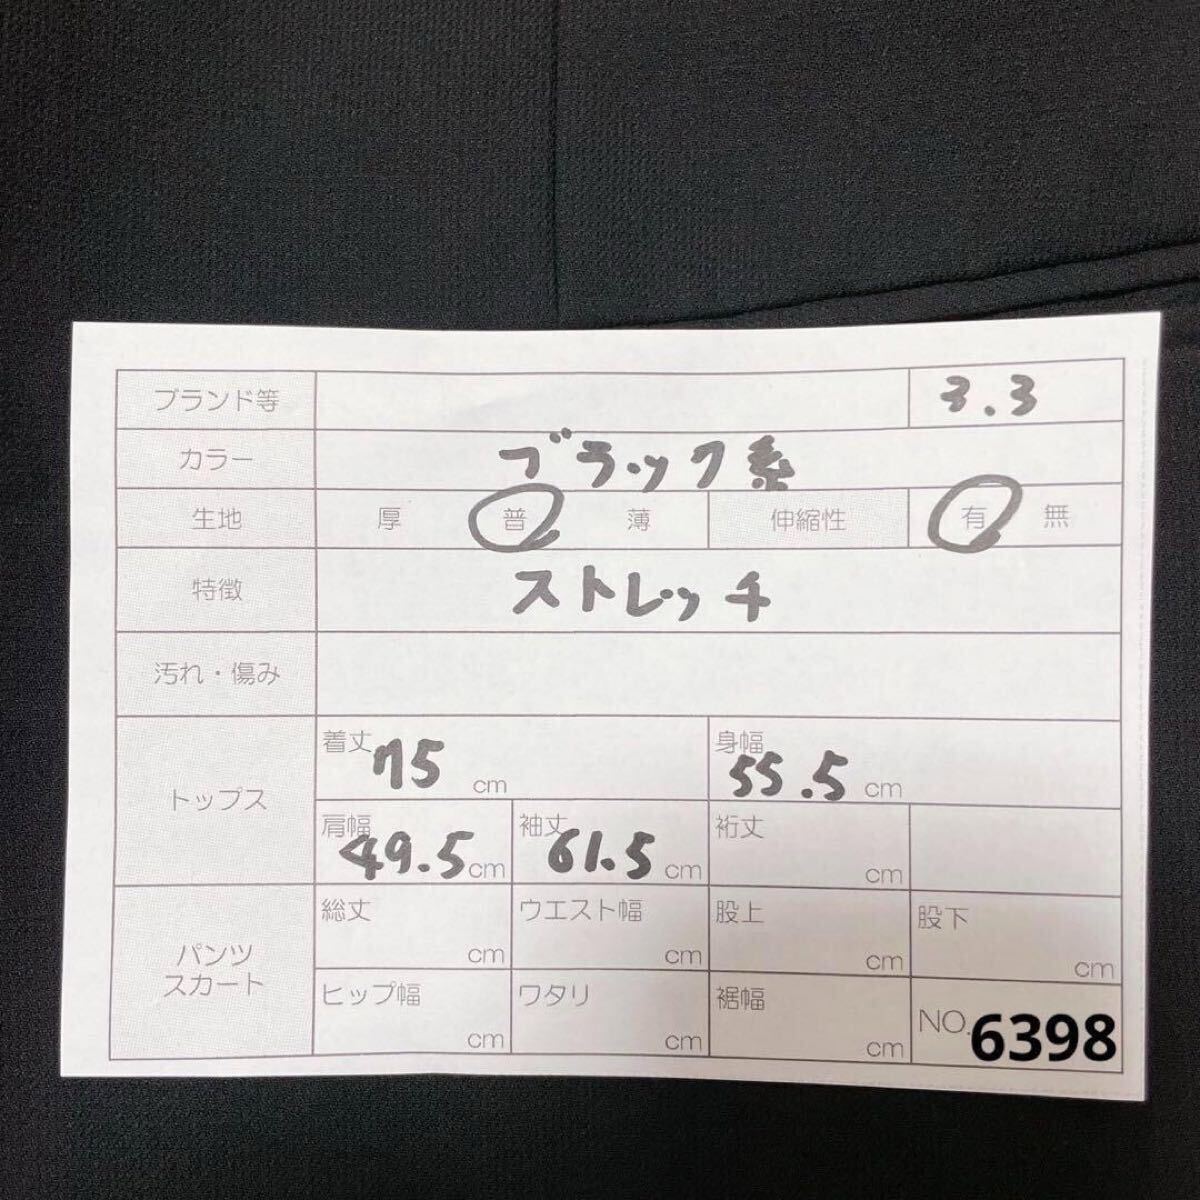 ブランド等 3.3
カラー ブラック系
生地 厚 普 薄 伸縮性 有 無
特徴 ストレッチ
汚れ・傷み
トップス
着丈 75 cm 身幅 55.5 cm
肩幅 49.5 cm 袖丈 61.5 cm 裄丈 cm
パンツ
スカート
総丈 cm ウエスト幅 cm 股上 cm 股下 cm
ヒップ幅 cm ワタリ cm 裾幅 cm NO. 6398